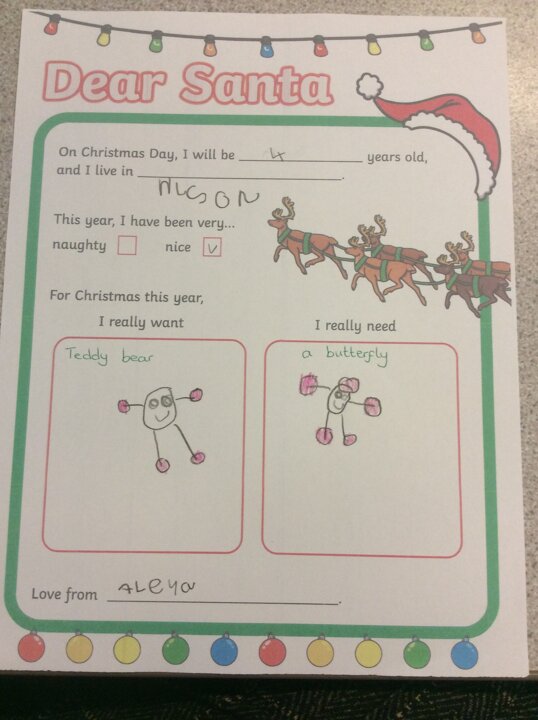 Dear Santa
On Christmas Day, I will be 4 years old,
and I live in
This year, I have been very...
naughty nice
For Christmas this year,
I really want I really need
Teddy bear a butterfly
Love from ALeya